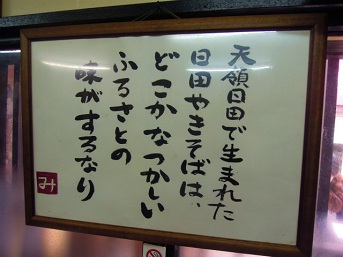 天領日田で生まれた
日田やきそばは、
どこかなつかしい
ふるさとの
味がするなり
み